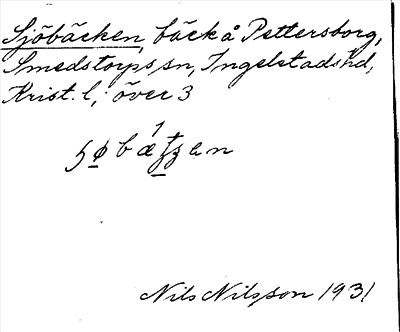 Sjöbäcken, bäck å Pettersborg,
Smedstorps sn, Ingelstads hd,
Krist. l; över 3
Nils Nilsson 1931